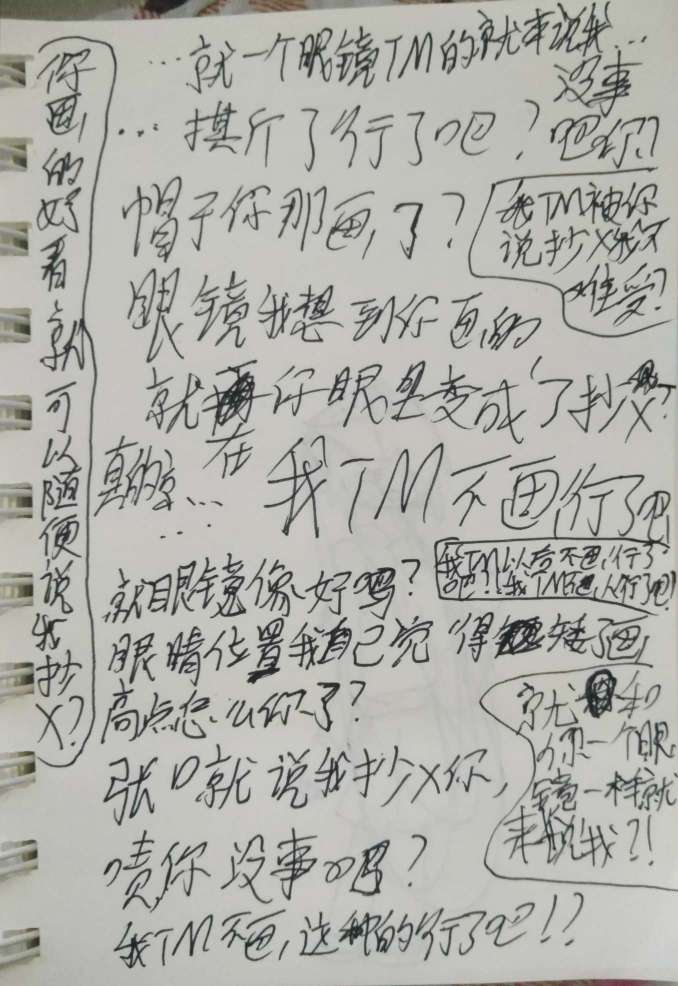 你画的好看就可以随便说我抄X?
…就一个眼镜TM的就来说我…
没事
吧你?
…了行了吧?
帽子你那画了?
我TM被你
说抄X我不
难受?
眼镜我想到你画的
就
在
你眼里变成了抄X?
真的……
我TM不画行了吧
就眼镜像好吗?
我TM以后不画行了
吧!我TM不画人行了吧!
眼睛位置我自己觉得矮了画
高点怎么你了?
就和
你一个眼
镜一样就
来说我?!
张口就说我抄X你,
啧你没事吗?
我TM不画这种的行了吧!?